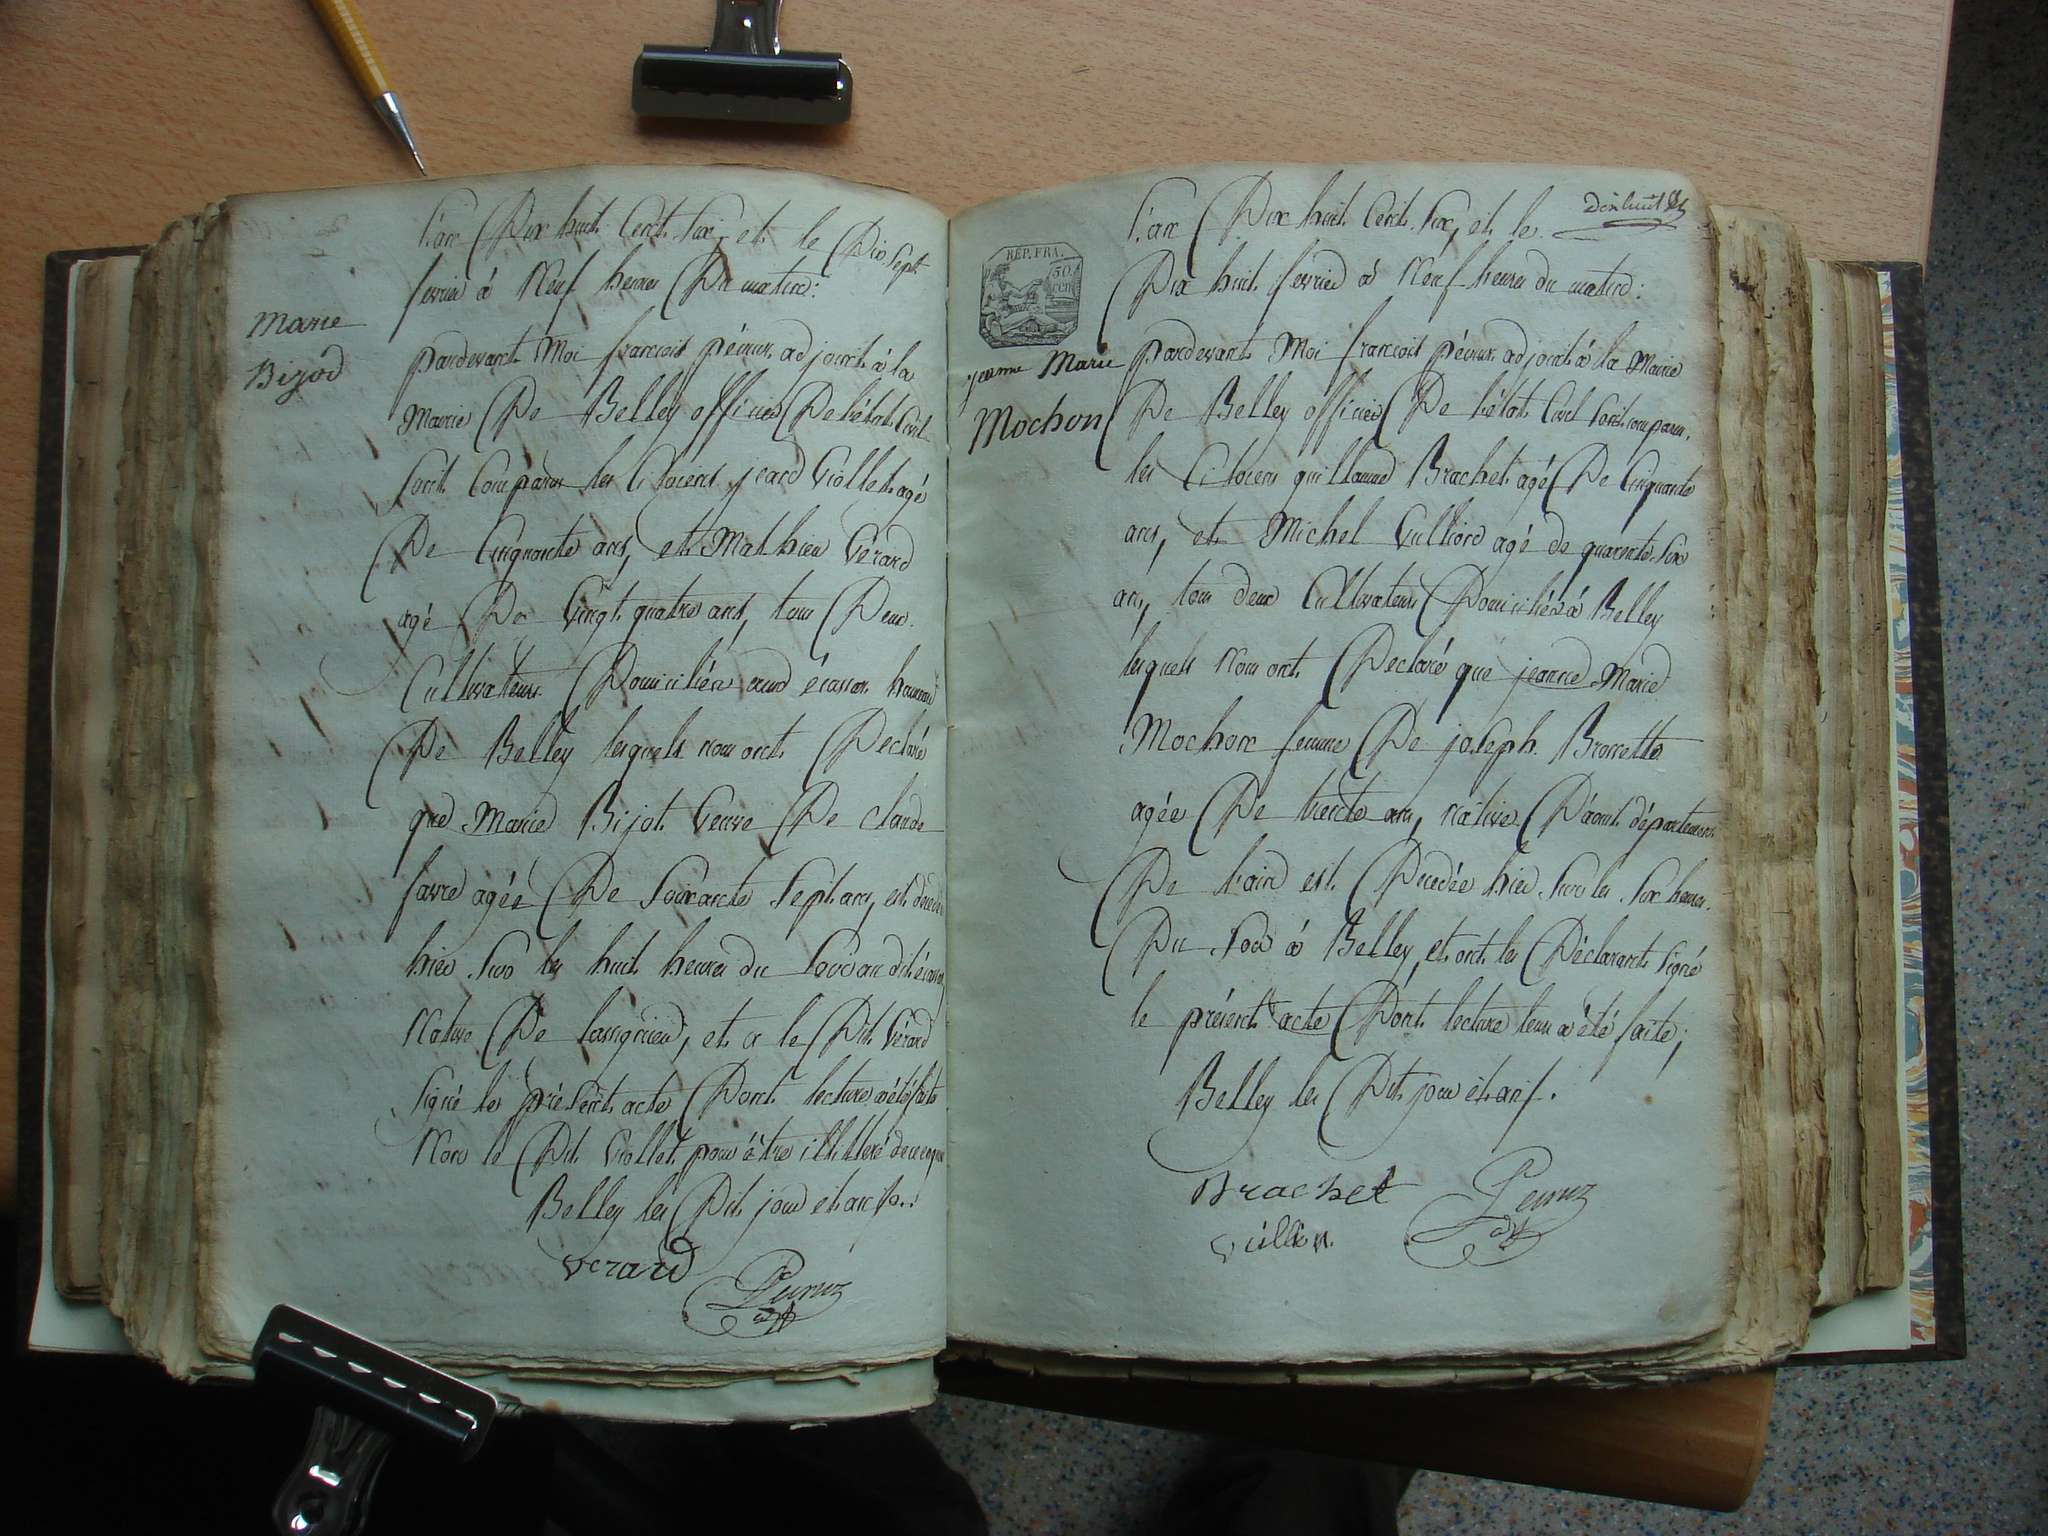 L'an Dix huit Cent Six, et le Dix Sept
fevrier à Neuf heures Du matin:
Marie
Bijod
pardevant Moi françois péruz adjoint à la
Mairie De Belley officier De l'état Civil
Sont Comparus les Citoiens jean Viollet agé
De Cinquante ans, et Mathieu Vérard
agé De Vingt quatre ans, tous Deux
Cultivateurs Domiciliés aux écassas hameau
De Belley lesquels nous ont Declaré
que Marie Bijot Veuve De claude
favre agée De Soixante Sept ans, est décedée
hier Sur les huit heures du Soir au dit écassas
Native De lassignieu, et a le Dit Vérard
Signé le présent acte Dont lecture a été faite
Non le Dit Viollet pour être illitteré de ce enquis
Belley les Dit jour et an ./.
verard
Peruz
adjt
Dix huit
L'an Dix huit Cent Six, et le
Dix huit fevrier à Neuf heures du matin:
RÉP. FRA.
50
cen
jeanne Marie
Mochon
pardevant Moi françois péruz adjoint à la Mairie
De Belley officier De l'état Civil Sont comparu
les Citoiens guillaume Brachet agé De Cinquante
ans, et Michel Vulliod agé de quarente Six
ans, tous deux Cultivateurs Domiciliés à Belley
lesquels nous ont Declaré que jeanne Marie
Mochon femme De joseph
agée De trente ans, native département
De l'ain est Decedée hier Sur les Six heures
Du Soir à Belley, et ont les Déclarants Signé
le présent acte Dont lecture leur a été faite;
Belley les Dit jour et an ./.
Brachet
Peruz
adjt